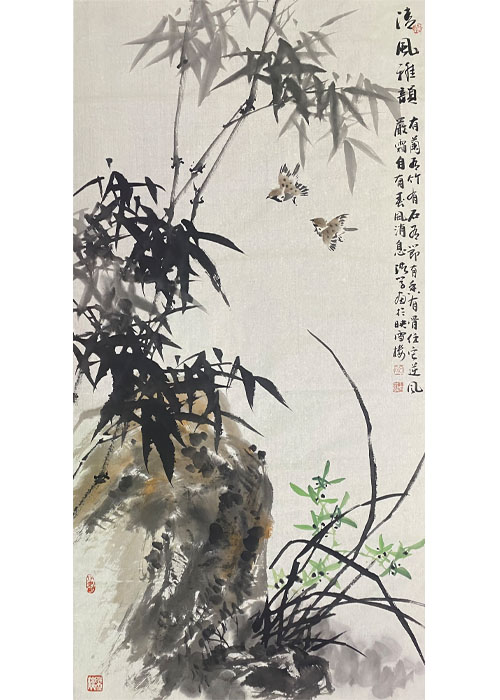 清風雅韻
有蘭有竹有石有節有香有骨任它逆風
嚴霜自有春風消息於映雪樓